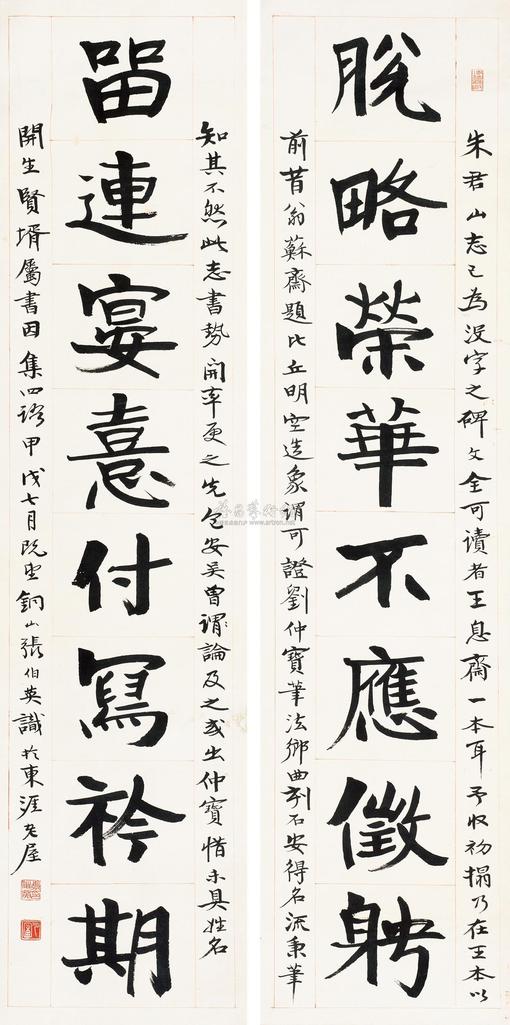 脫略榮華不應徵聘
留連宴憙付寫衿期
朱君山志已為沒字之碑文全可讀者王息齋一本耳予收初搨乃在王本以
前昔翁蘇齋題比丘明空造象謂可證劉仲寶筆法鄉曲刻石安得名流秉筆
知其不然此志書勢開率更之先包安吳曾謂論及之或出仲寶惜未具姓名
開生賢壻屬書因集四語甲戌七月既望銅山張伯英識於東涯老屋
www.artron.net